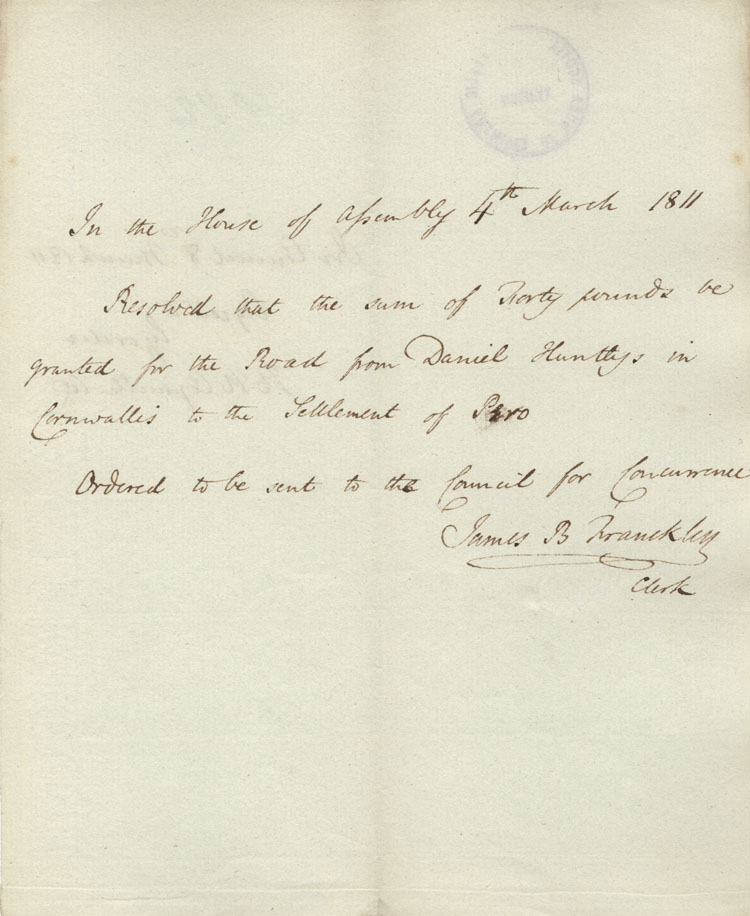 In the House of Assembly 4th March 1811
Resolved that the sum of Forty pounds be
granted for the Road from Daniel Huntlys in
Cornwallis to the Settlement of Pero
Ordered to be sent to the Council for Concurrence
James B Franckley
Clerk